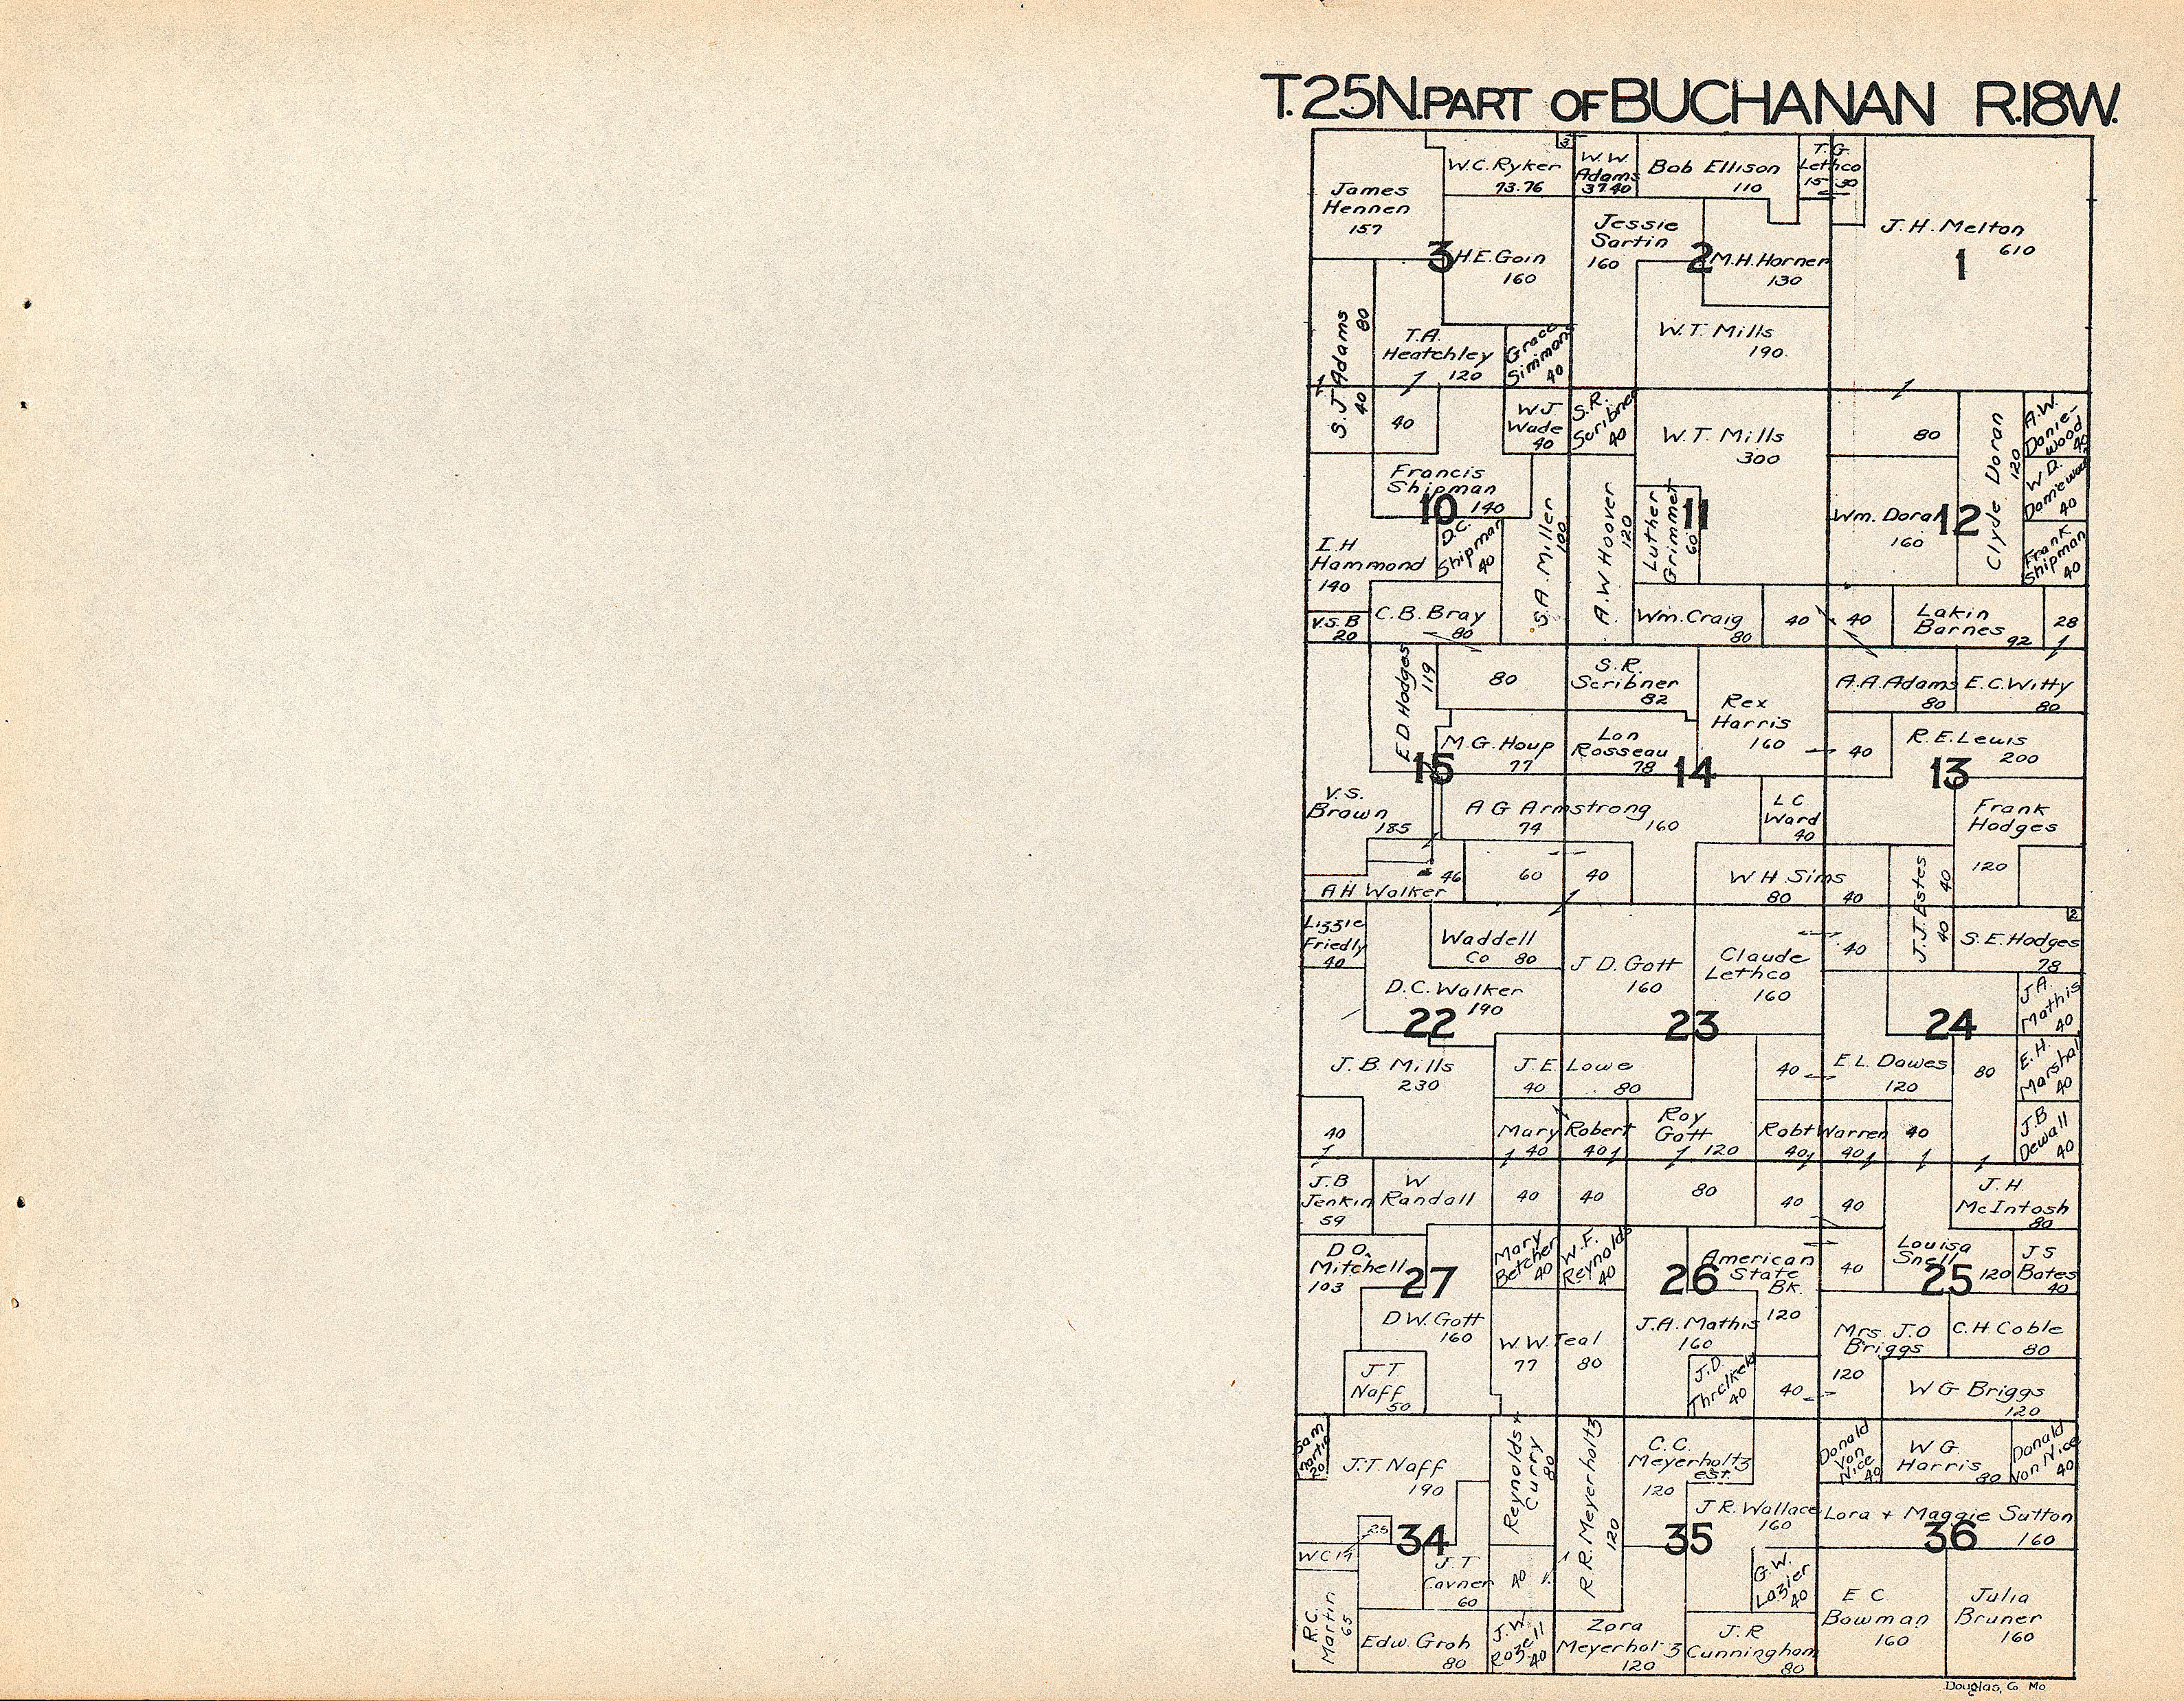 T.25N. PART OF BUCHANAN R.18W.
3
W.C. Ryker
73.76
W. W.
Adams
37.40
Bob Ellison
110
T. G.
Lethco
15 30
James
Hennen
157
Jessie
Sartin
160
J. H. Melton
610
3
H.E. Goin
160
2
M.H. Horner
130
1
S. J. Adams
80
40
T.A.
Heatchley
120
Grace
Simmons
40
W. T. Mills
190.
40
W.J.
Wade
40
S.R.
Scribner
40
W. T. Mills
300
80
Clyde Doran
120
A.W.
Danie-
wood
40
Francis
Shipman
140
10
W. D.
Daniewood
40
I. H
Hammond
140
D.C.
Shipman
40
S.A. Miller
100
A. W Hoover
120
Luther
Grimmet
60
11
Wm. Doran
160
12
Frank
Shipman
40
V.S.B
20
C.B. Bray
80
Wm. Craig
80
40
40
Lakin
Barnes
92
28
E D. Hodges
119
80
S.R.
Scribner
82
Rex
Harris
160
A.A. Adams
80
E.C. Witty
80
M.G. Houp
77
Lon
Rosseau
78
40
R.E. Lewis
200
15
14
13
V.S.
Brown
185
A G Armstrong
74
160
L C
Ward
40
Frank
Hodges
120
46
A H Walker
60
40
W H Sims
80
40
J.J. Estes
40
40
Lizzie
Friedly
40
Waddell
Co 80
J D. Gott
160
Claude
Lethco
160
40
2
S. E. Hodges
78
D.C. Walker
190
J A.
Mathis
40
22
23
24
J. B. Mills
230
J. E. Lowe
40
80
40
E L. Dawes
120
80
E. H.
Marshal
40
40
Mary
40
Robert
40
Roy
Gott
120
Robt Warren
40
40
40
J. B
Dewall
40
J. B
Jenkin
59
W
Randall
40
40
80
40
40
J. H
McIntosh
80
D O.
Mitchell
103
27
Mary
Betcher
40
W. F.
Reynolds
40
26
American
State
Bk.
120
40
Louisa
Snell
120
25
J S
Bates
40
D W. Gott
160
W W. Teal
77
80
J.A. Mathis
160
Mrs J. O
Briggs
120
C. H. Coble
80
J T
Naff
50
J. D.
Thralkeld
40
40
W G Briggs
120
Sam
Martin
20
J. T. Naff
190
Reynolds +
Curry
80
R R. Meyerholtz
120
C. C.
Meyerholtz
est.
120
Donald
Von
Nice
40
W G.
Harris
80
Donald
Von Nice
40
J R. Wallace
160
Lora + Maggie Sutton
160
25
34
35
36
W C
J. T
Cavner
60
40
G. W.
Lazier
40
R. C.
Martin
65
Edw. Groh
80
J. W.
Rozell
40
Zora
Meyerholtz
120
J. R
Cunningham
80
E C
Bowman
160
Julia
Bruner
160
Douglas, Co Mo